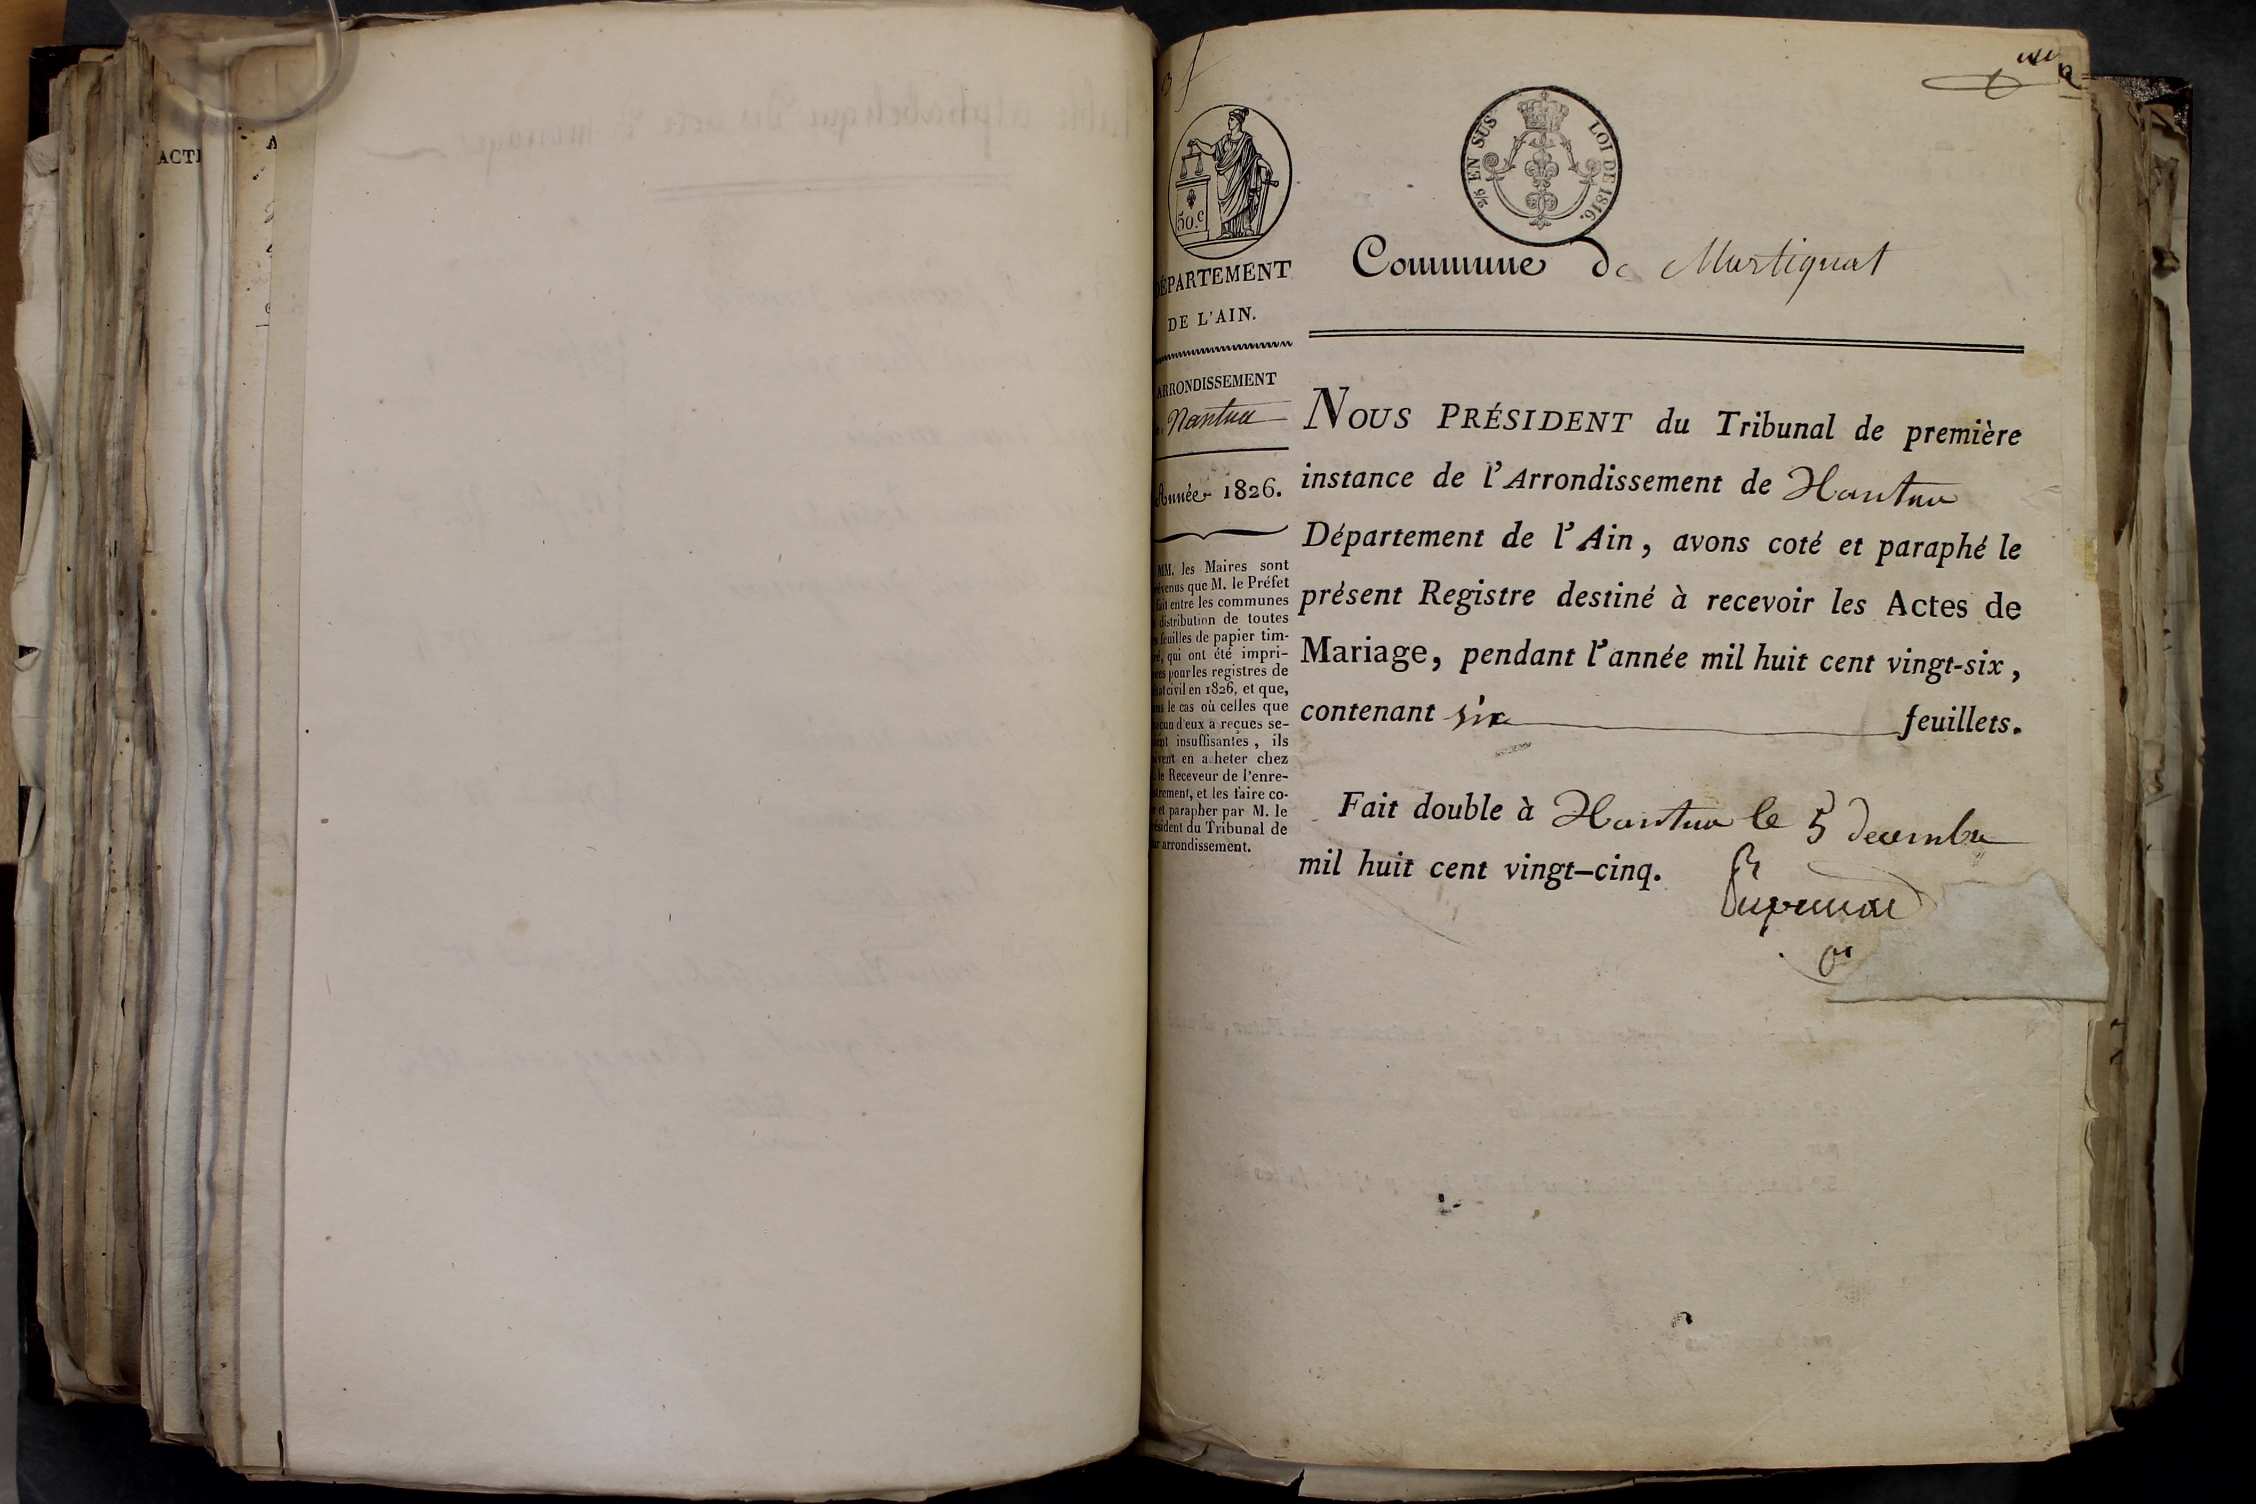 ACTE
2/5 EN SUS LOI DE 1816.
50.c
DÉPARTEMENT
DE L'AIN.
ARRONDISSEMENT
Nantua
Année 1826.
MM. les Maires sont
prévenus que M. le Préfet
fait entre les communes
distribution de toutes
feuilles de papier tim-
bré, qui ont été impri-
mées pour les registres de
l'état civil en 1826, et que,
dans le cas où celles que
chacun d'eux a reçues se-
raient insuffisantes, ils
doivent en acheter chez
le Receveur de l'enre-
gistrement, et les faire co-
ter et parapher par M. le
Président du Tribunal de
leur arrondissement.
Commune de Martignat
NOUS PRÉSIDENT du Tribunal de première
instance de l'Arrondissement de Nantua
Département de l'Ain, avons coté et paraphé le
présent Registre destiné à recevoir les Actes de
Mariage, pendant l'année mil huit cent vingt-six,
contenant six feuillets.
Fait double à Nantua le 5 decembre
mil huit cent vingt-cinq.